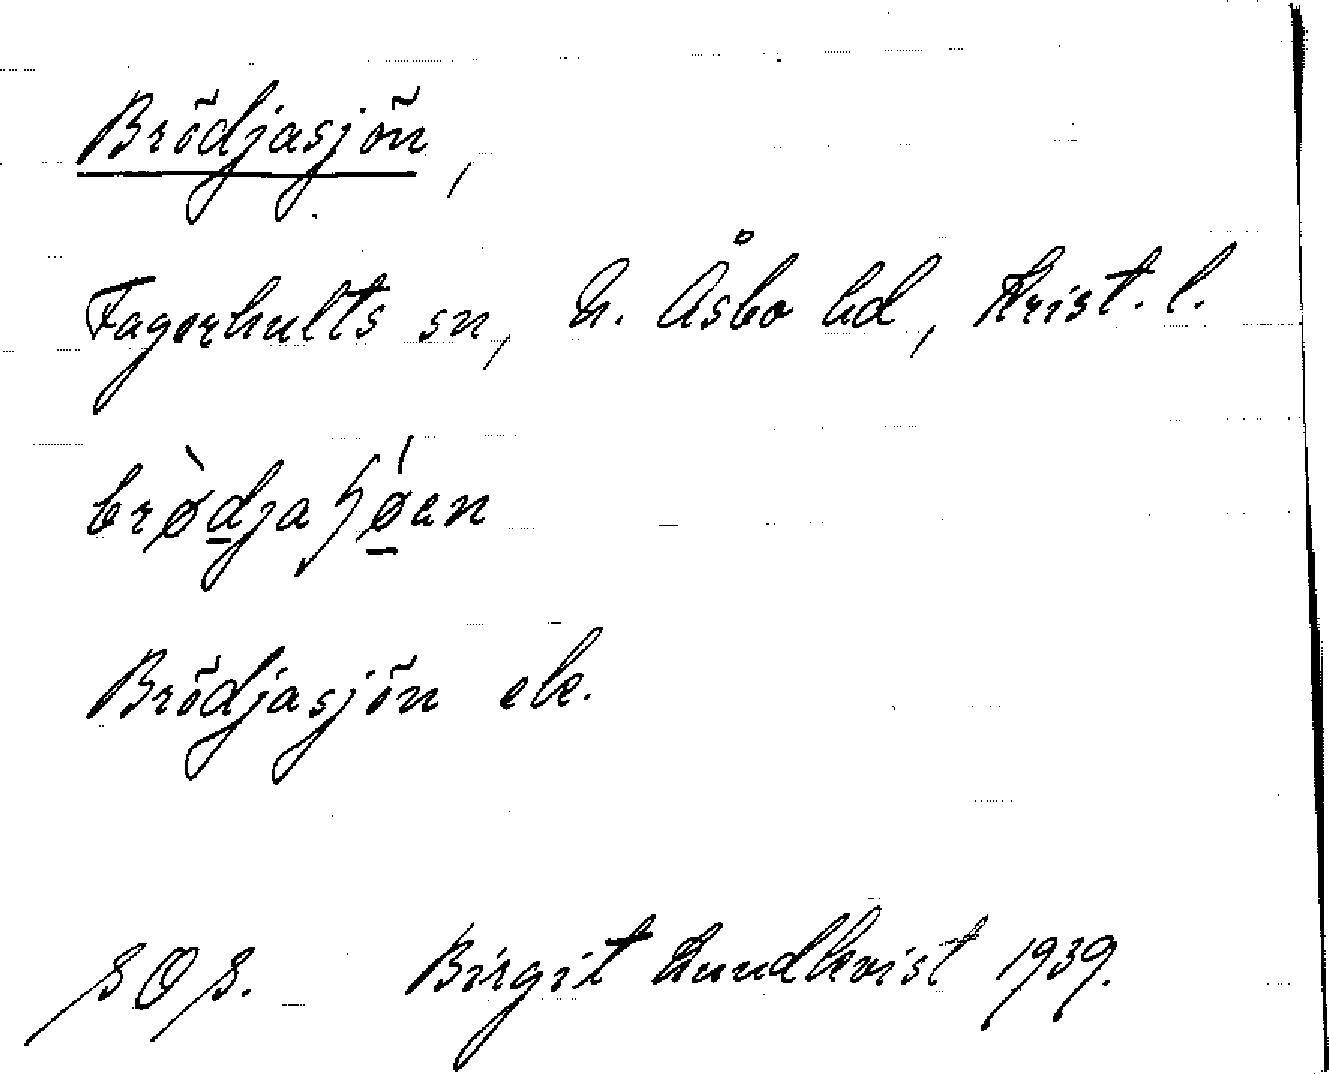 Brödjasjön,
Fagerhults sn, N. Åsbo hd, Krist. l.
Brödjasjön ek.
SOS. Birgit Lundkvist 1939.